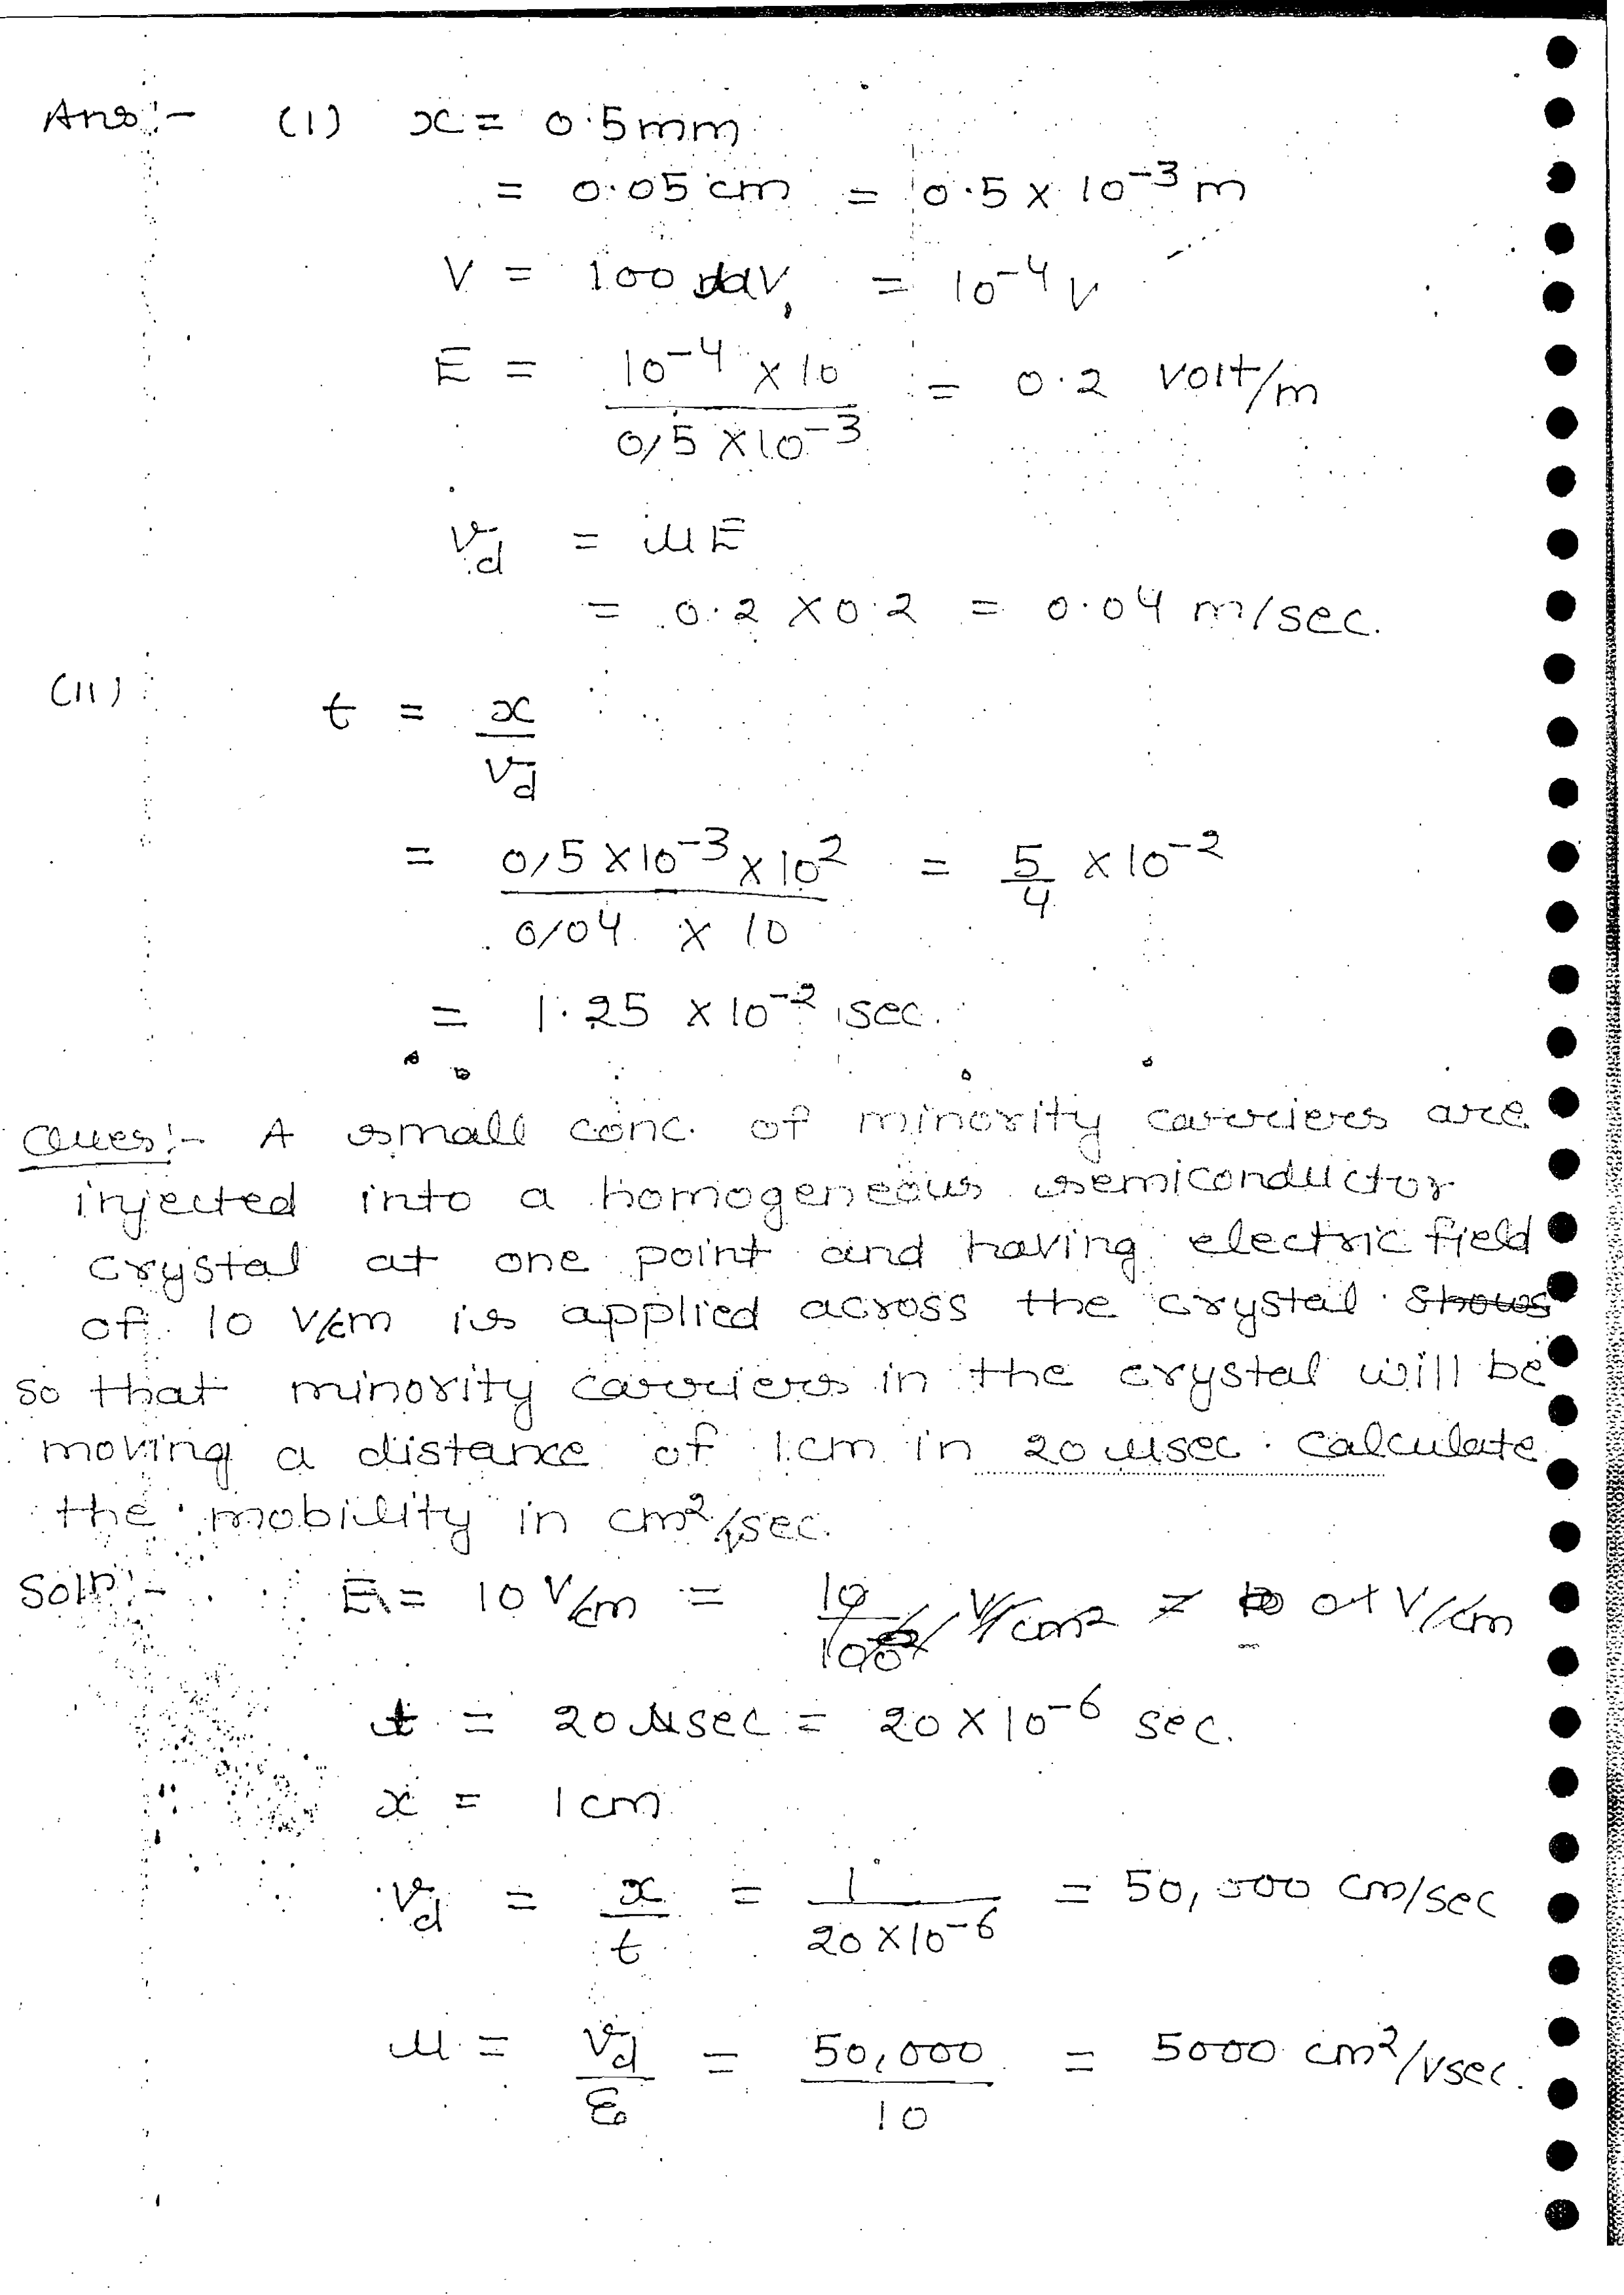 Ans:- (I) x = 0.5mm
= 0.05 cm = 0.5 × 10⁻³ m
V = 100 μV, = 10⁻⁴ V
E = (10⁻⁴ × 10) / (0/5 × 10⁻³) = 0.2 volt/m
v_d = μE
= 0.2 × 0.2 = 0.04 m/sec.
(II) t = x / v_d
= (0/5 × 10⁻³ × 10²) / (0/04 × 10) = 5/4 × 10⁻²
= 1.25 × 10⁻² sec.
Ques:- A small conc. of minority carriers are
injected into a homogeneous semiconductor
crystal at one point and having electric field
of 10 V/cm is applied across the crystal shows
so that minority carriers in the crystal will be
moving a distance of 1cm in 20 μsec. calculate
the mobility in cm²/vsec.
Soln:- E = 10 V/cm =
t = 20 μsec = 20 × 10⁻⁶ sec.
x = 1 cm
v_d = x / t = 1 / (20 × 10⁻⁶) = 50,000 cm/sec
μ = v_d / E = 50,000 / 10 = 5000 cm²/vsec.